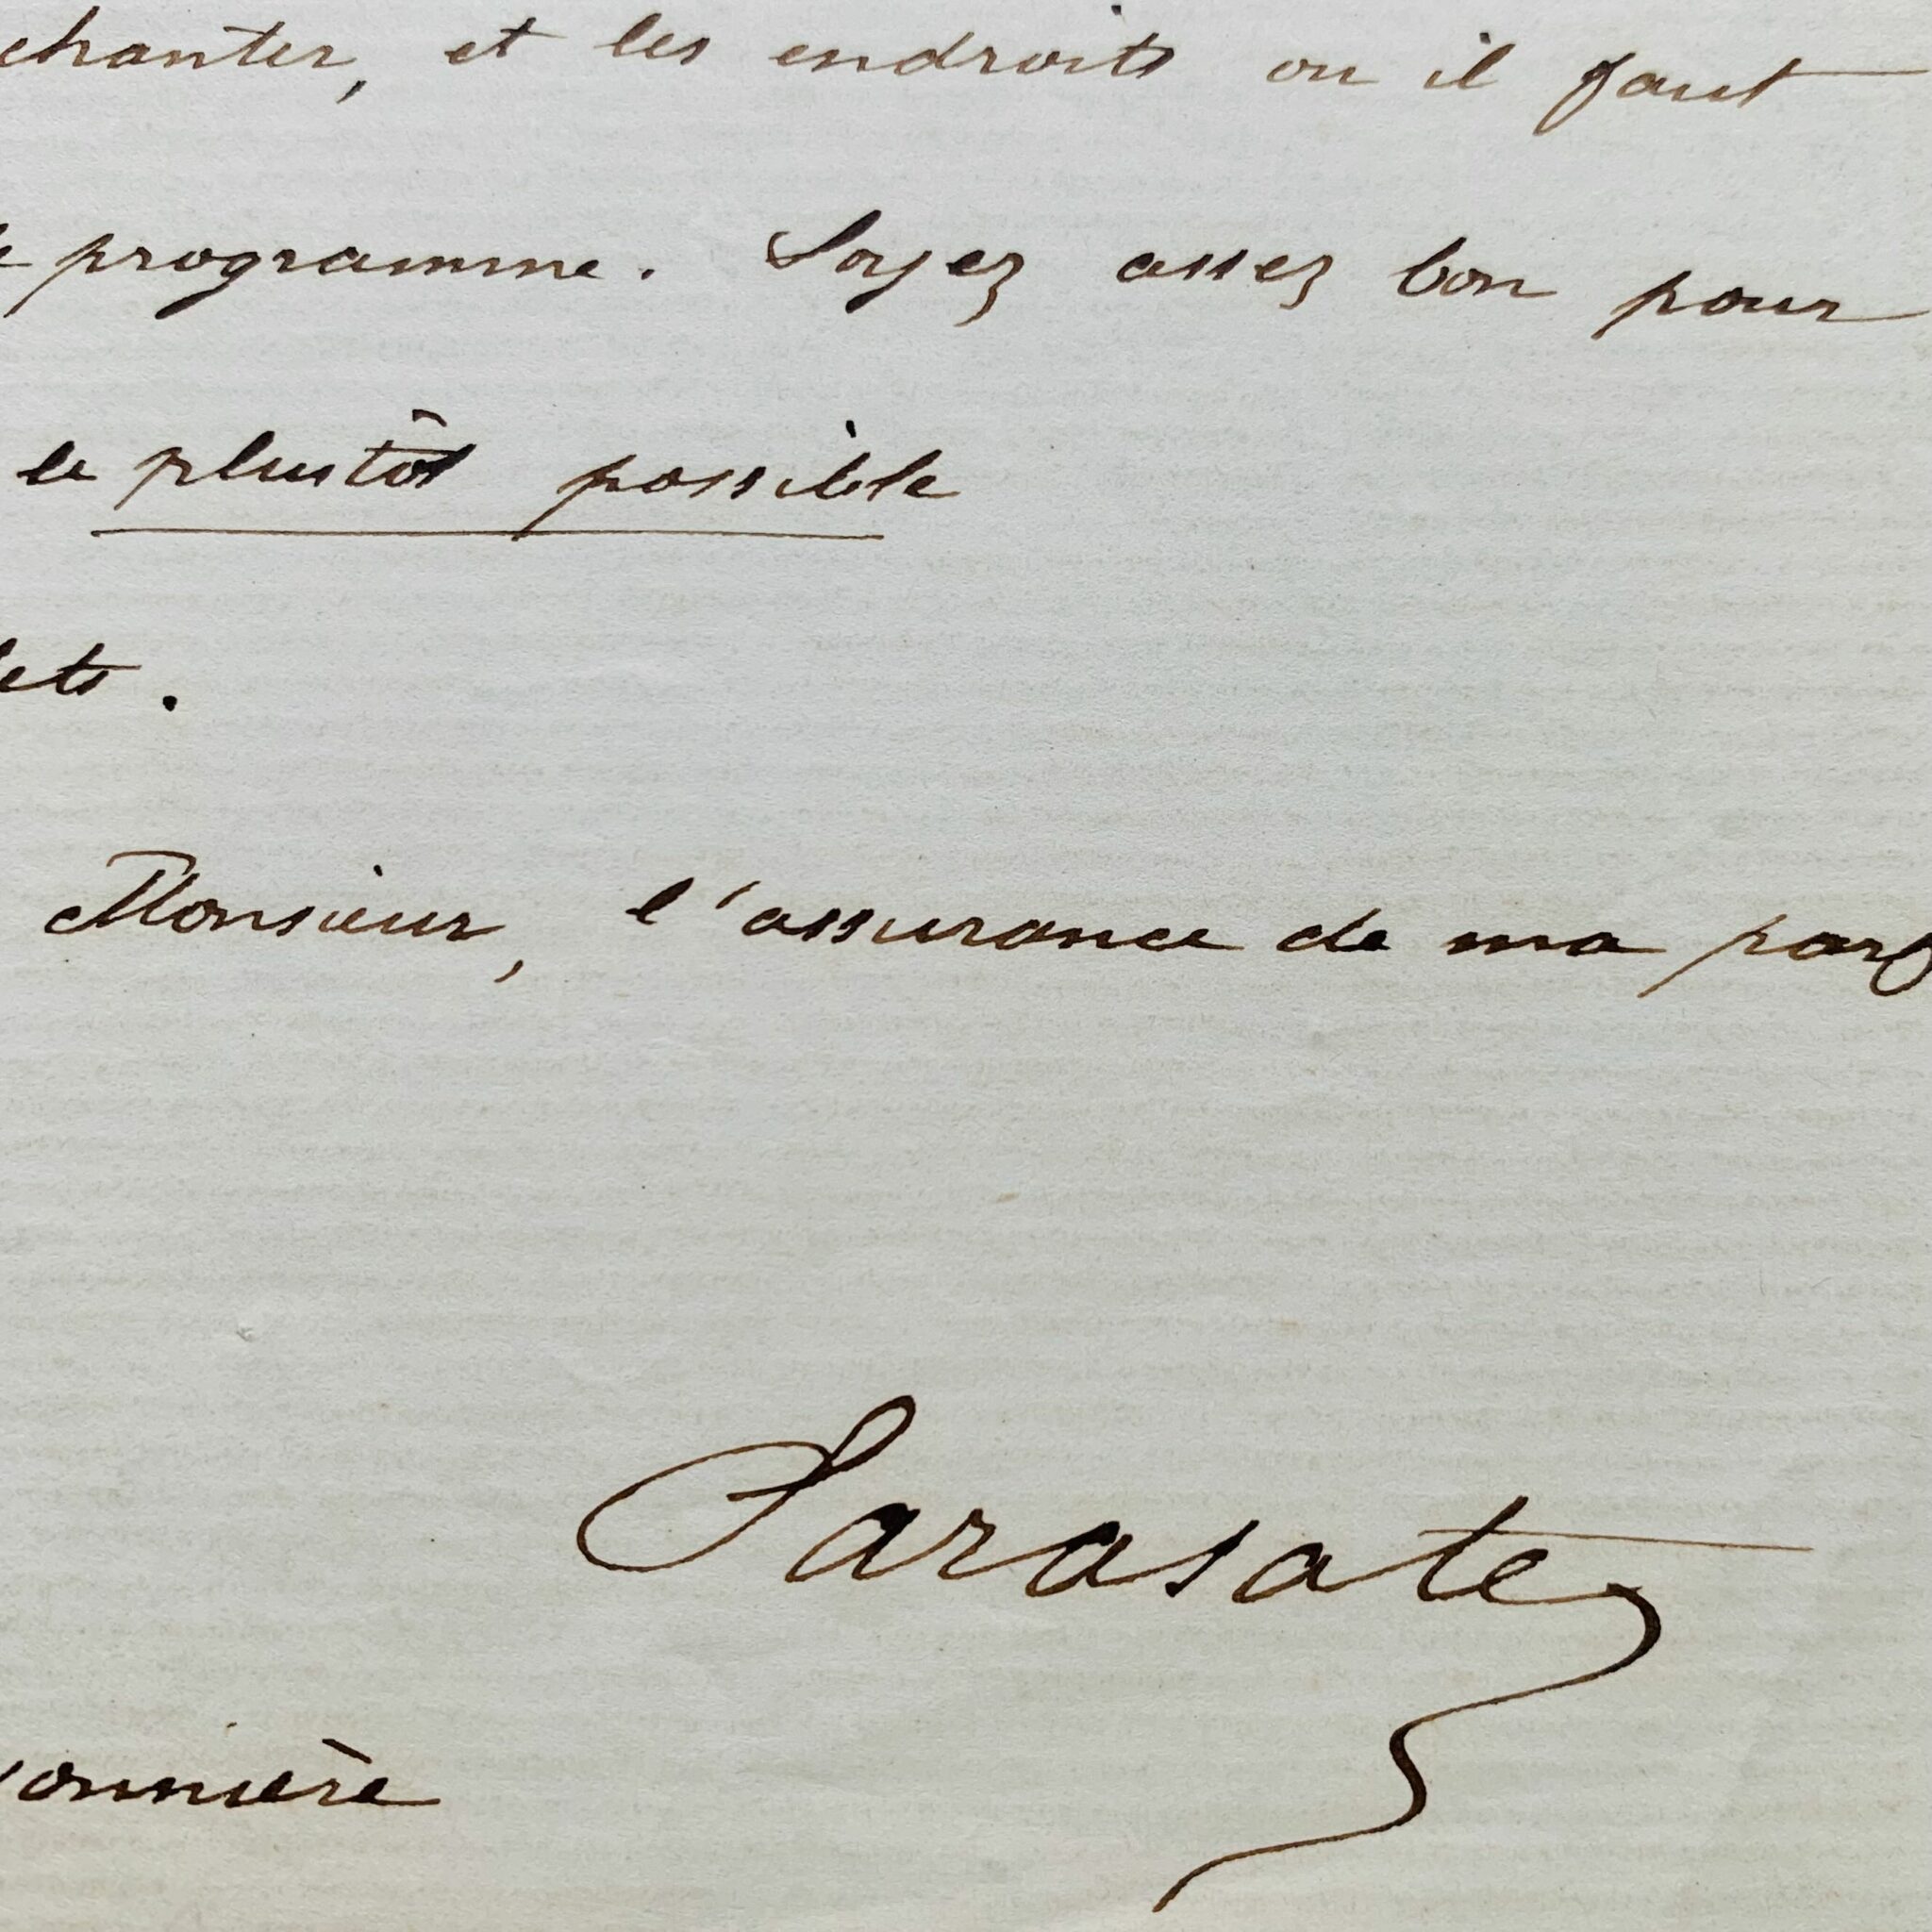 chanter, et les endroits ou il faut
programme. Soyez assez bon pour
le plustôt possible
lets.
Monsieur, l'assurance de ma parf
Sarasate
onnière